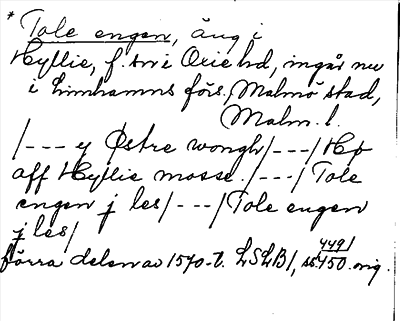 * Tole engen, äng i
Hyllie, f. sn i Oxie hd, ingår nu
i Limhamns förs. Malmö stad,
Malm. l.
/--- y Østre wongh/---/ Hø
aff Hyllie mosse./---/ Tole
engen j les/---/Tole engen
j les/
förra delen av 1570-t. LSLB1, ss. 449/
450. orig.